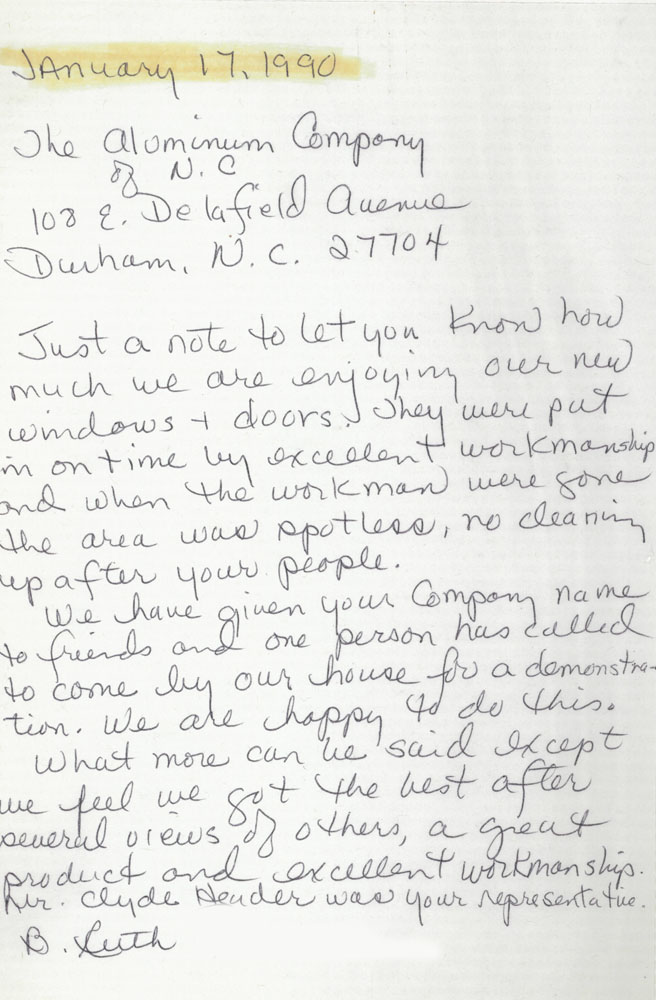 January 17, 1990
The Aluminum Company
of N.C
108 E. Delafield Avenue
Durham, N.C. 27704
Just a note to let you know how
much we are enjoying our new
windows + doors. They were put
in on time by excellent workmanship
and when the workman were gone
the area was spotless, no cleaning
up after your people.
We have given your Company name
to friends and one person has called
to come by our house for a demonstra-
tion. We are happy to do this.
What more can be said except
we feel we got the best after
several views of others, a great
product and excellent workmanship.
Mr. Clyde was your representative.
B.